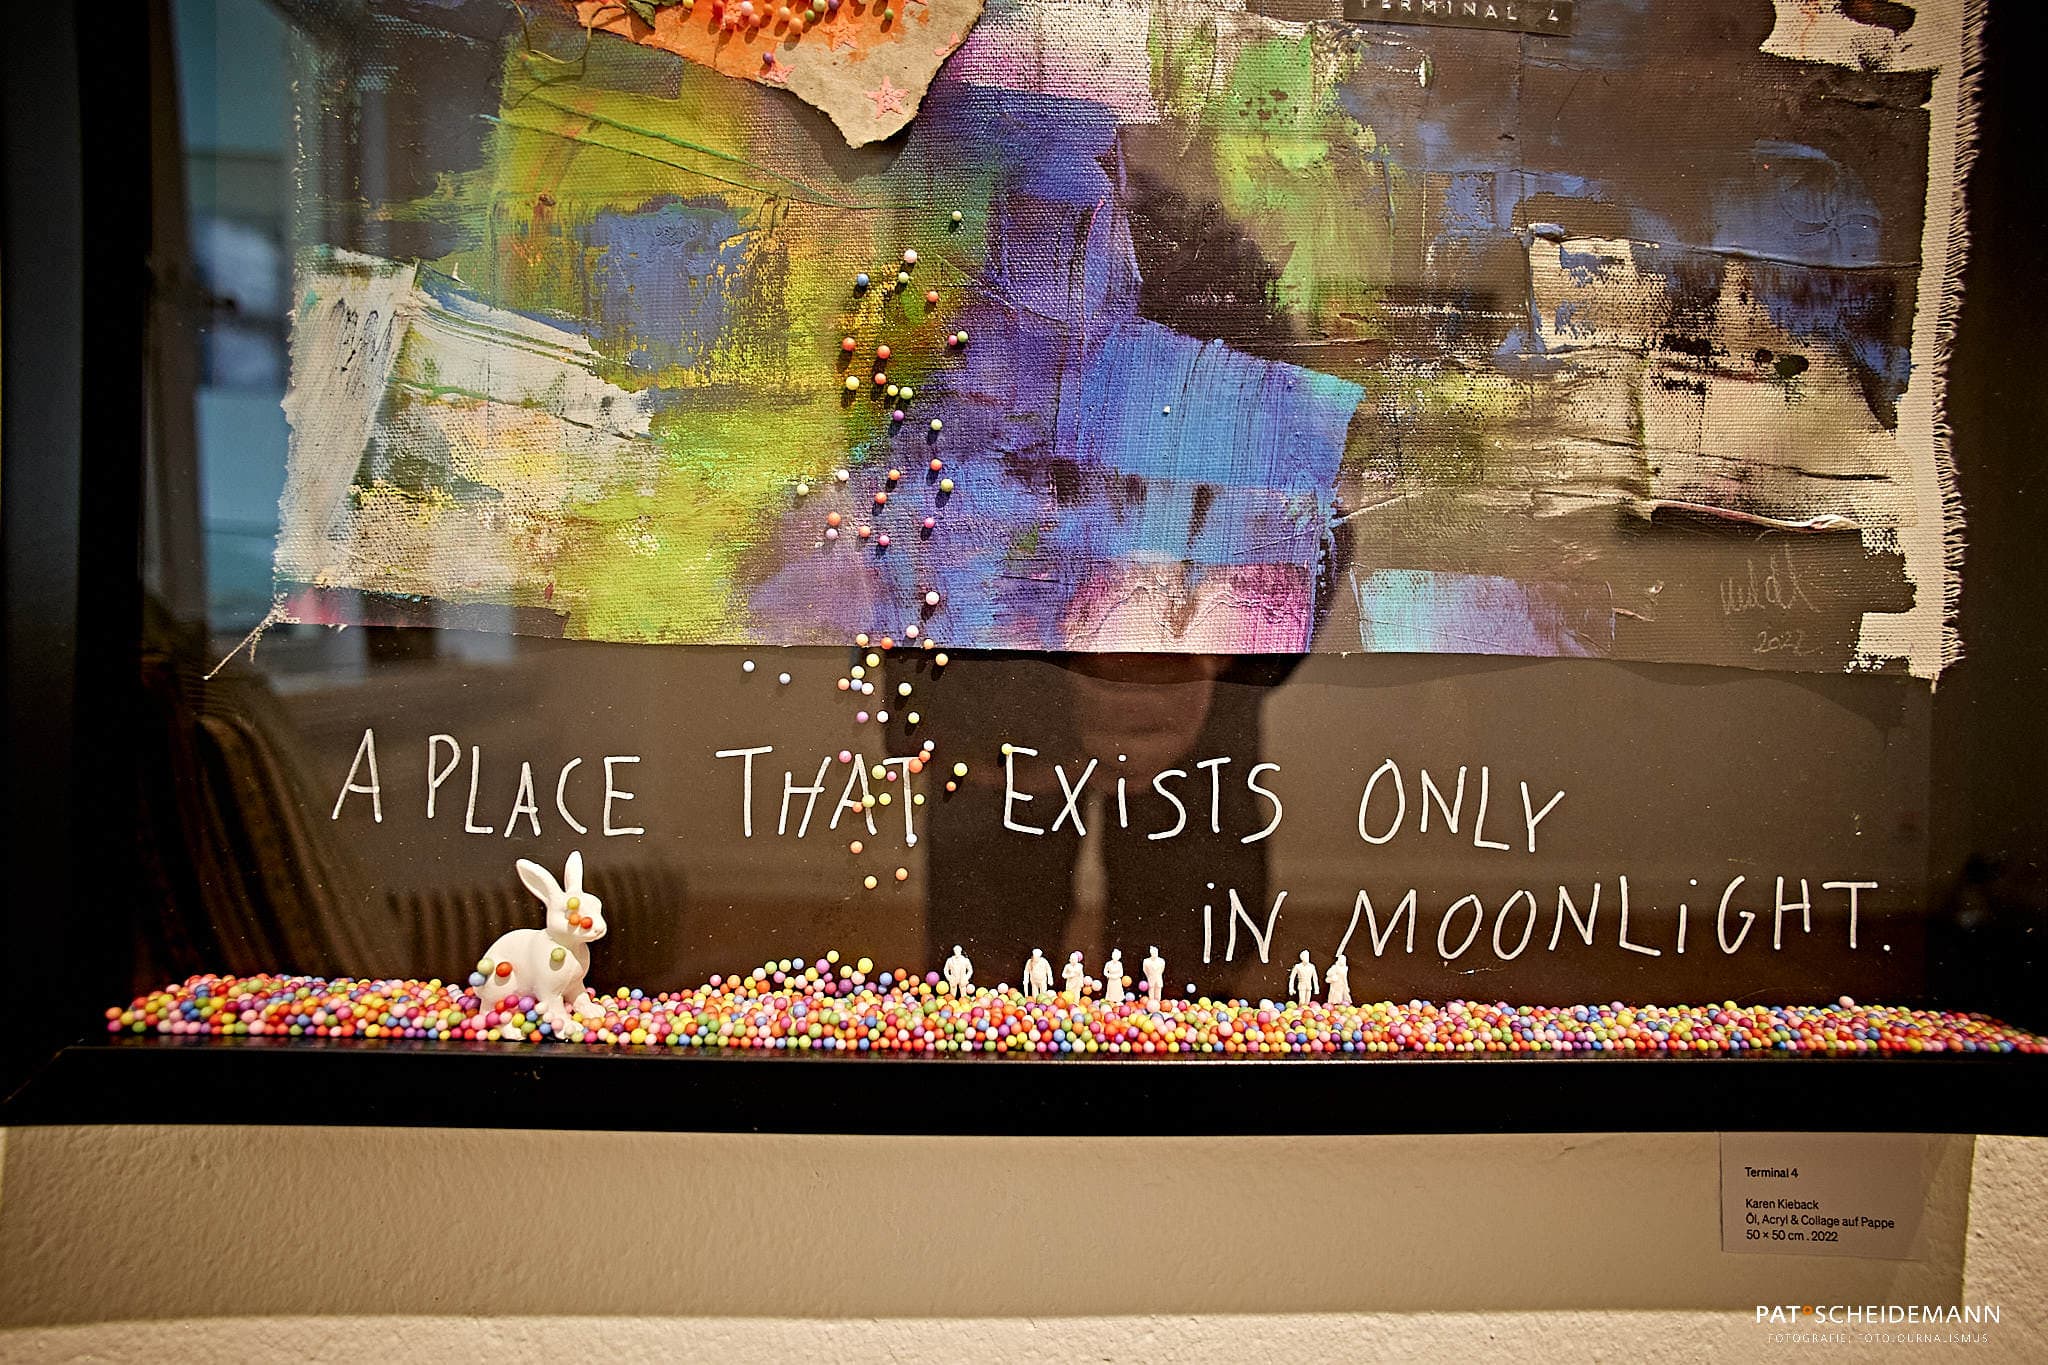 TERMINAL 4
2022
A PLACE THAT EXiSTS ONLY
iN MOONLiGHT.
Terminal 4
Karen Kieback
Öl, Acryl & Collage auf Pappe
50 × 50 cm . 2022
PAT°SCHEIDEMANN
FOTOGRAFIE, FOTOJOURNALISMUS